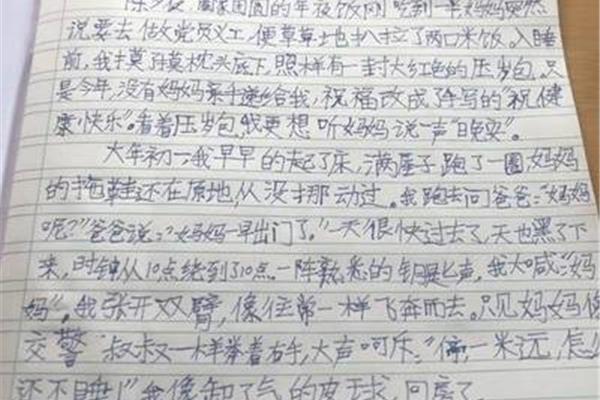 除夕夜 阖家团圆的年夜饭刚吃到一半妈妈突然
说要去做党员义工,便草草地扒拉了两口米饭。入睡
前,我摸摸枕头底下,照样有一封大红色的压岁包。只
是今年,没有妈妈亲手递给我,祝福改成了手写的"祝健
康快乐"。看着压岁包,我更想听妈妈说一声"晚安"。
大年初一我早早的起了床,满屋子跑了一圈,妈妈
的拖鞋还在原地,从没挪动过。我跑去问爸爸:"妈妈
呢?"爸爸说:"妈妈一早出门了。"一天很快过去了,天也黑了下
来,时钟从10点绕到了10点。一阵熟悉的钥匙声,我大喊"妈
妈"。我张开双臂,像往常一样飞奔而去。只见妈妈像
交警 叔叔一样举着右手,大声呵斥:"停,一米远,怎么
还不睡!"我像卸了气的皮球,回房了